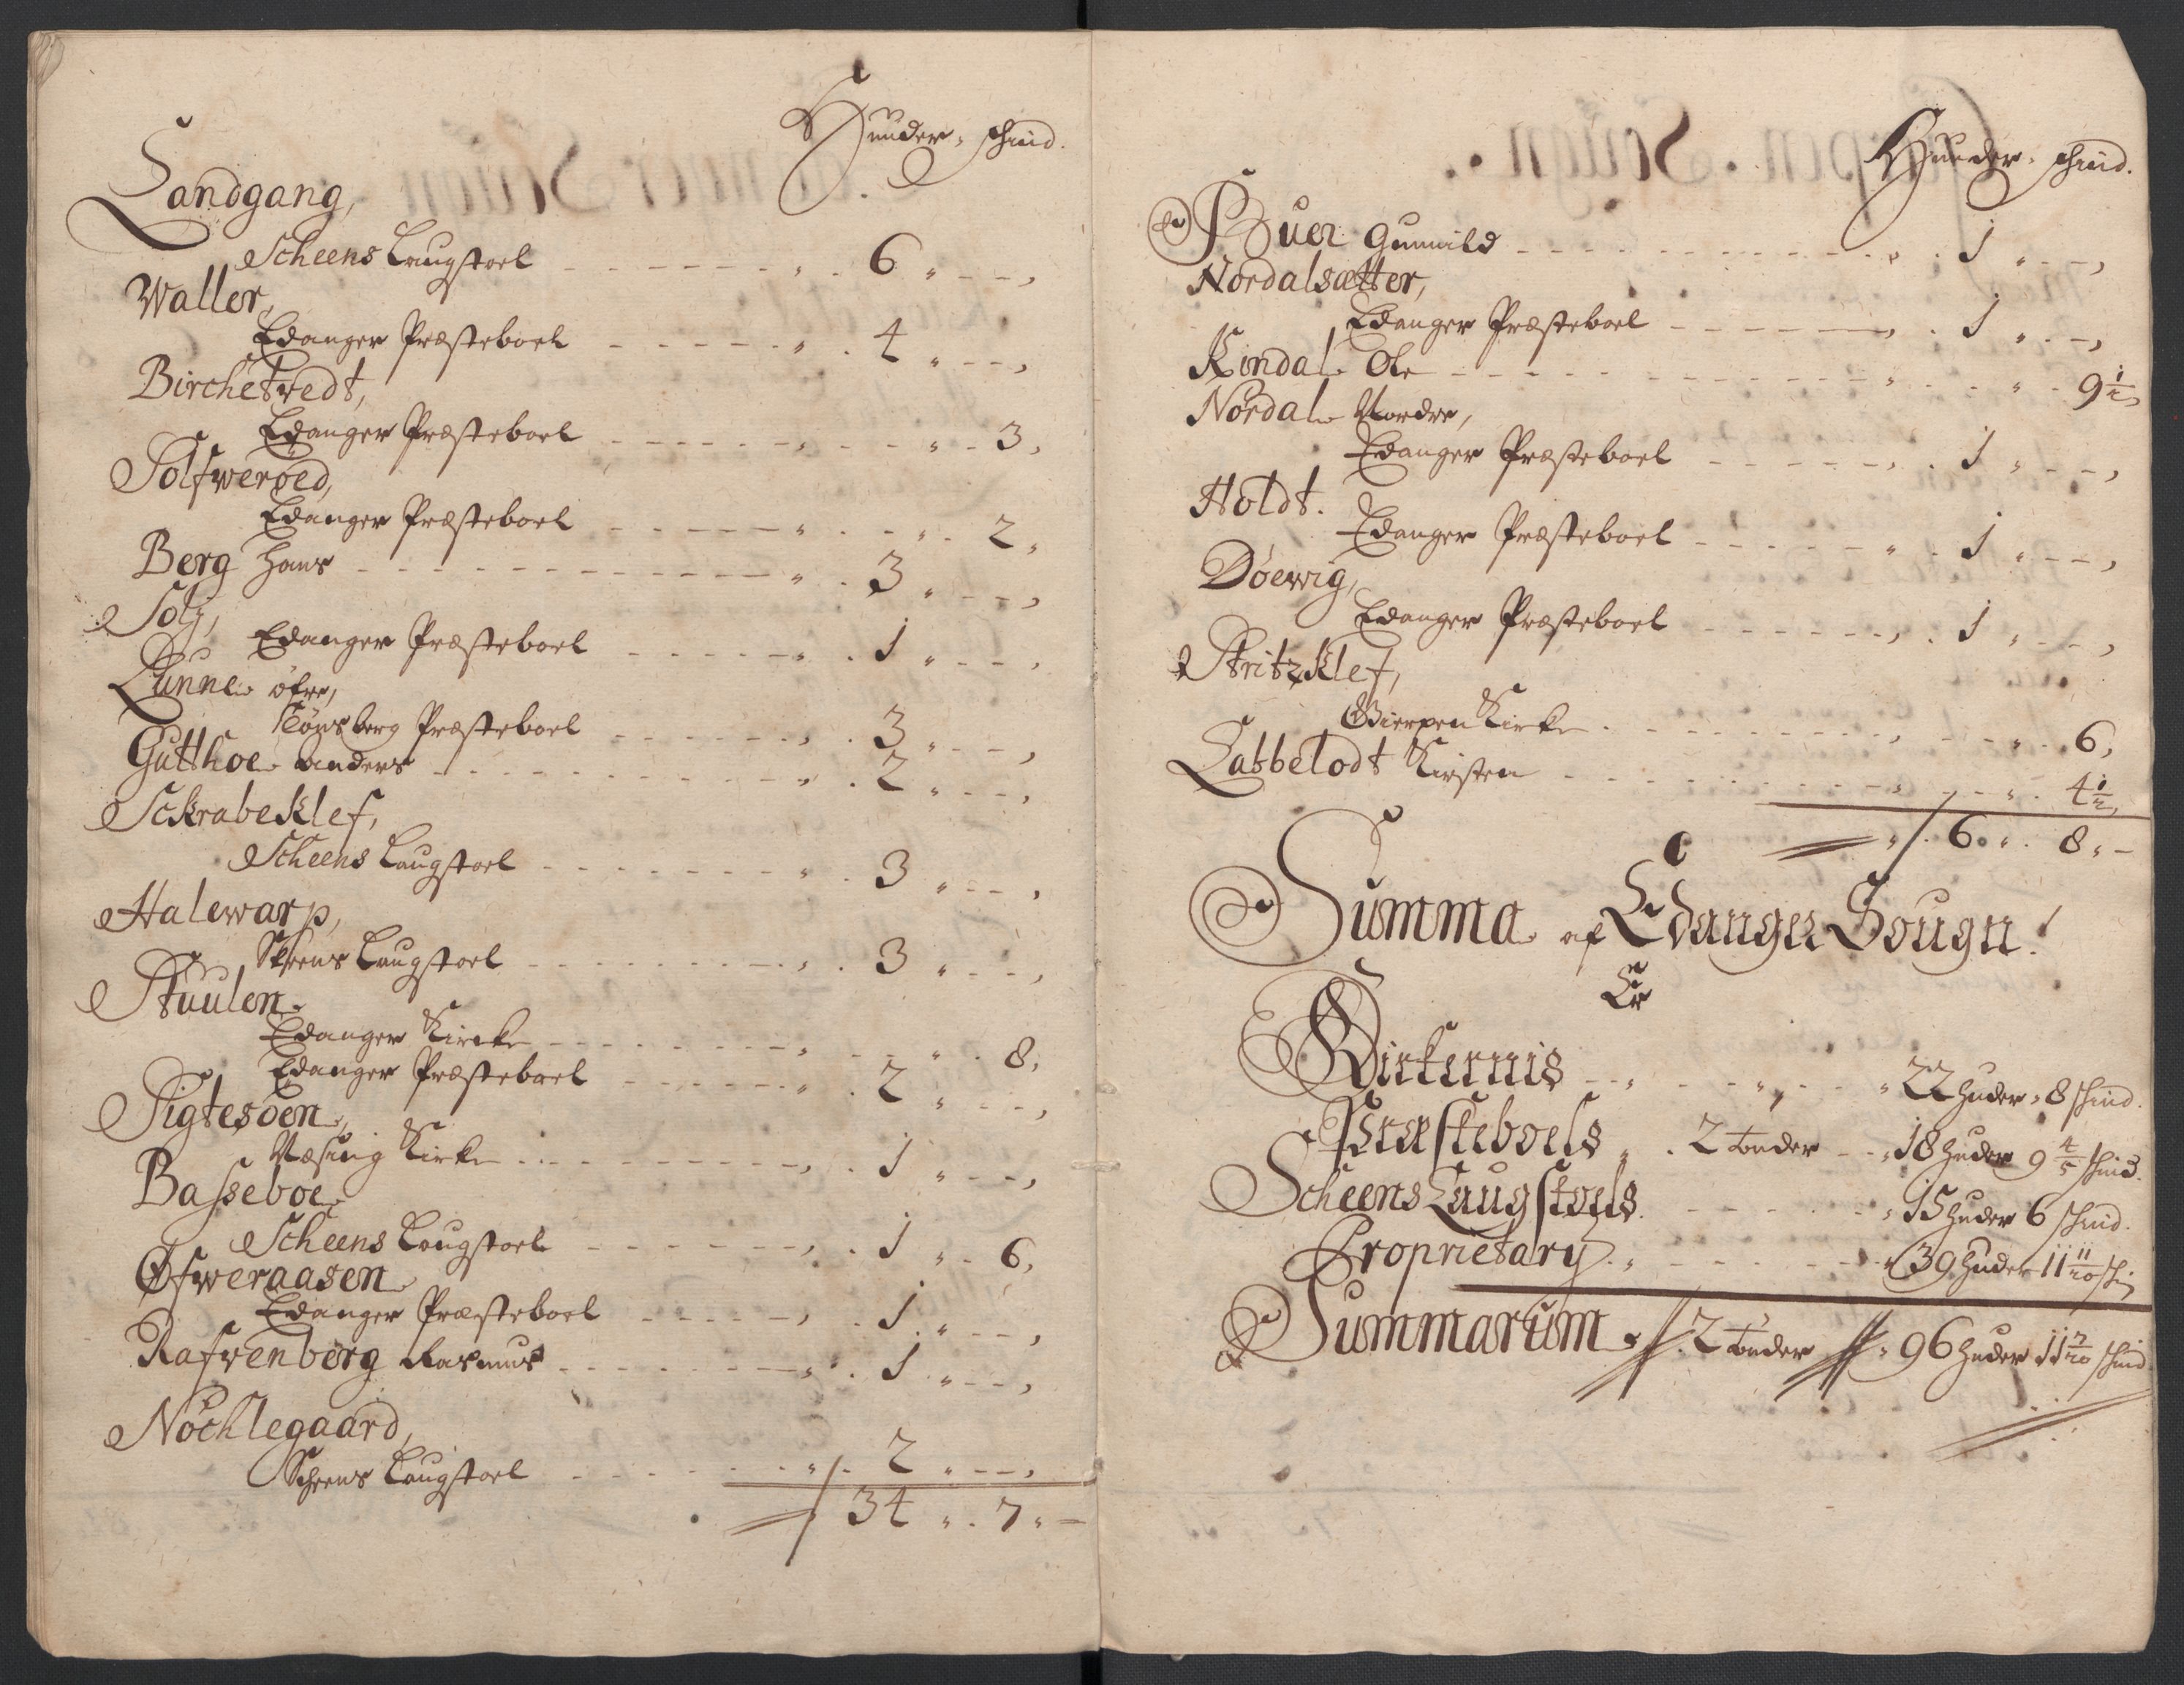 Huuder, schind.
Landgang,
Scheens Laugstoel - - - - 6 „ - -,
Waller,
Edanger Præsteboel - - - - 4 „ - -,
Birchetvedt,
Edanger Præsteboel - - - - „ - 3,
Solfweröed,
Edanger Præsteboel - - - - „ - 2,
Berg Hans - - - - 3 „ - -,
Solj,
Edanger Præsteboel - - - - 1 „ - -,
Lunne öfre,
Tönsberg Præsteboel - - - - 3 „ - -,
Gutthoe Anders - - - - 2 „ - -,
Sckrabeklef,
Scheens Laugstoel - - - - 3 „ - -,
Halewarp,
Skeens Laugstoel - - - - 3 „ - -,
Stuulen
Edanger Kircke - - - - „ - 8,
Edanger Præsteboel - - - - 2 „ - -,
Sigtesöen,
Næsing Kirke - - - - 1 „ - -,
Basseboe
Scheens Laugstoel - - - - 1 „ - 6,
Öfweraasen
Edanger Præsteboel - - - - 1 „ - -,
Rafvenborg Rasmus - - - - 1 „ - -,
Nöchlegaard,
Scheens Laugstoel - - - - 2 „ - -,
34 „ 7 „ -
Huuder, schind.
Buer Gunnild - - - - 1 „ - -,
Nordalsætter,
Edanger Præsteboel - - - - 1 „ - -,
Kindal Ole - - - - „ - 9 1/2,
Nordal Nordre,
Edanger Præsteboel - - - - 1 „ - -,
Holdt.
Edanger Præsteboel - - - - 1 „ - -,
Döewig,
Edanger Præsteboel - - - - 1 „ - -,
Stritzklef,
Gierpen Kirke - - - - „ - 6,
Labbetodt Kirsten - - - - „ - 4 1/2,
6 „ 8 „ -
Summa af Edanger Sougn!
Er
Kirkernis - - „ 22 huder „ 8 schind.
Præsteboels „ 2 tønder - - „ 18 huder 9 4/5 schind.
Scheens Laugstoels - - - - „ 15 huder 6 schind.
Proprietary „ - - - - „ 39 huder 11 11/20 schind
Summarum „ 2 tønder „ 96 huder 11 7/20 schind